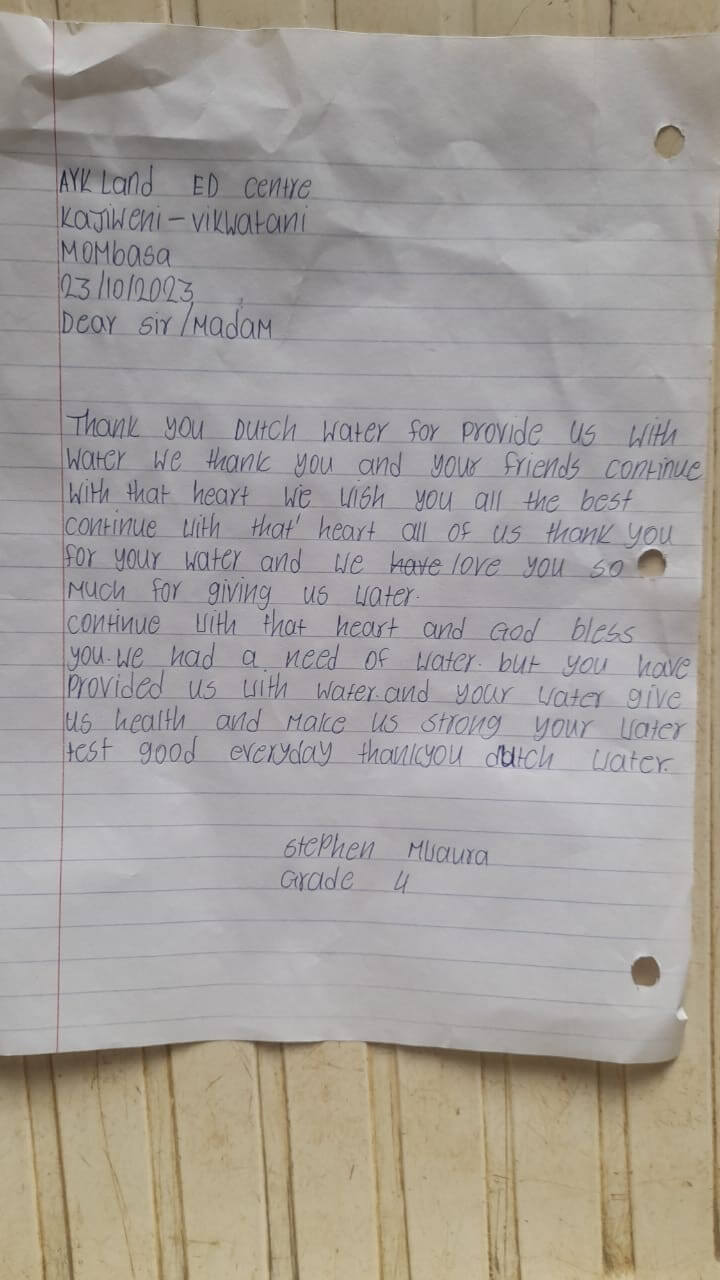 AYK Land ED centre
Kajiweni - vikwatani
Mombasa
23/10/2023
Dear sir/Madam
Thank you Dutch water for provide us with
water we thank you and your friends continue
with that heart we wish you all the best
continue with that heart all of us thank you
for your water and we have love you so
much for giving us water.
continue with that heart and God bless
you. we had a need of water. but you have
provided us with water. and your water give
us health and make us strong your water
test good everyday thankyou dutch water.
Stephen Mwaura
Grade 4